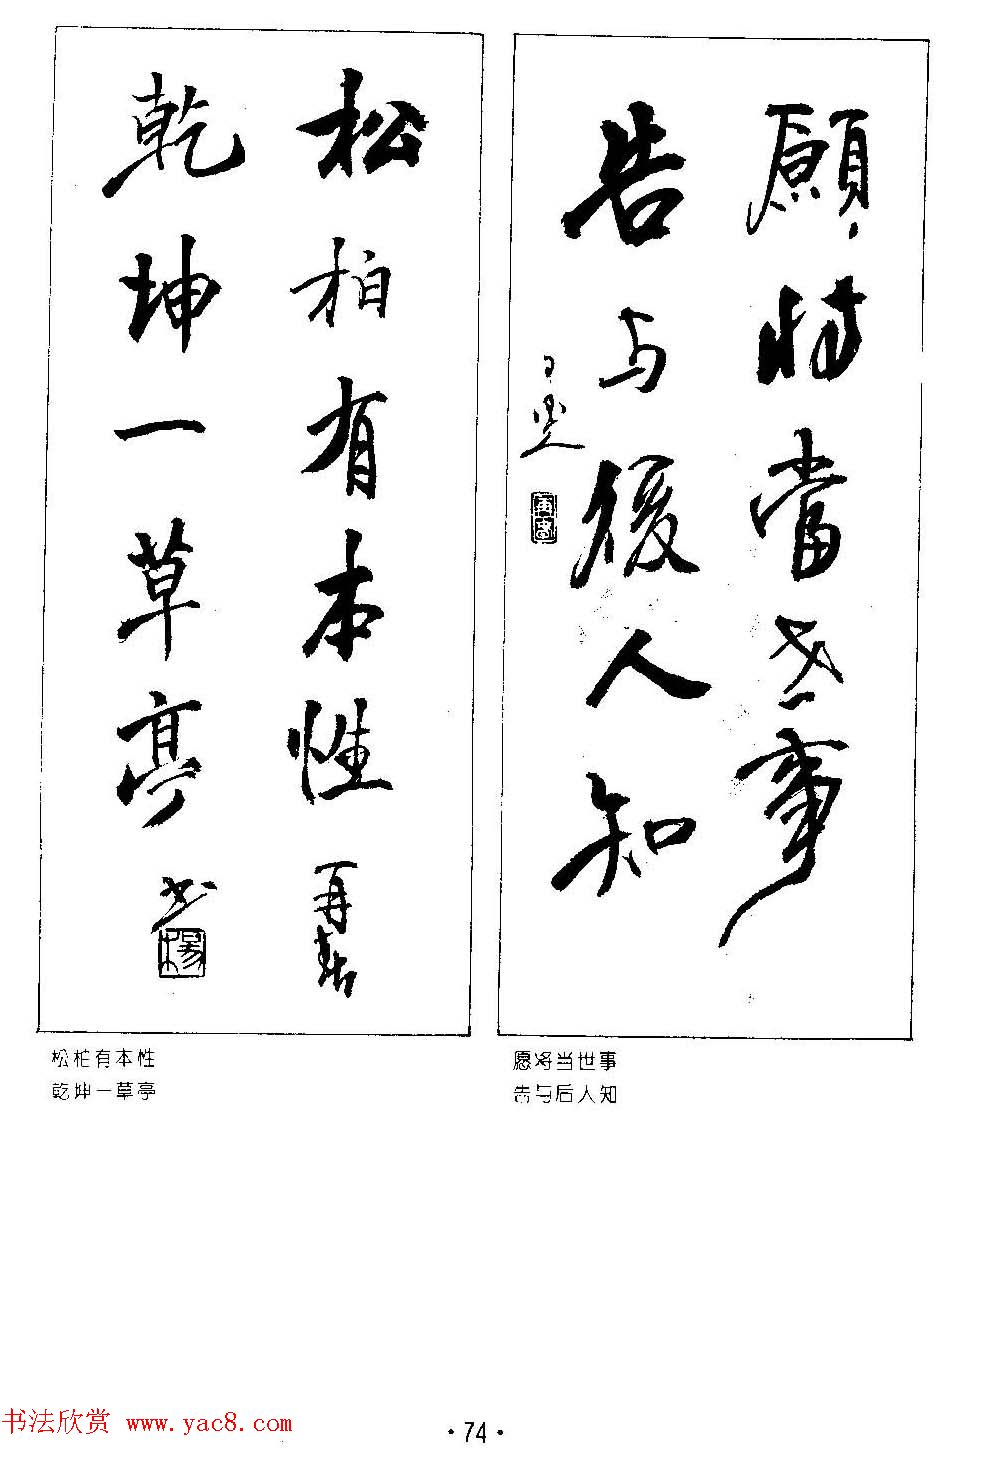 願將當世事
告与後人知
松柏有本性
乾坤一草亭
再春
书
楊
愿将当世事
告与后人知
松柏有本性
乾坤一草亭
书法欣赏 www.yac8.com
·74·